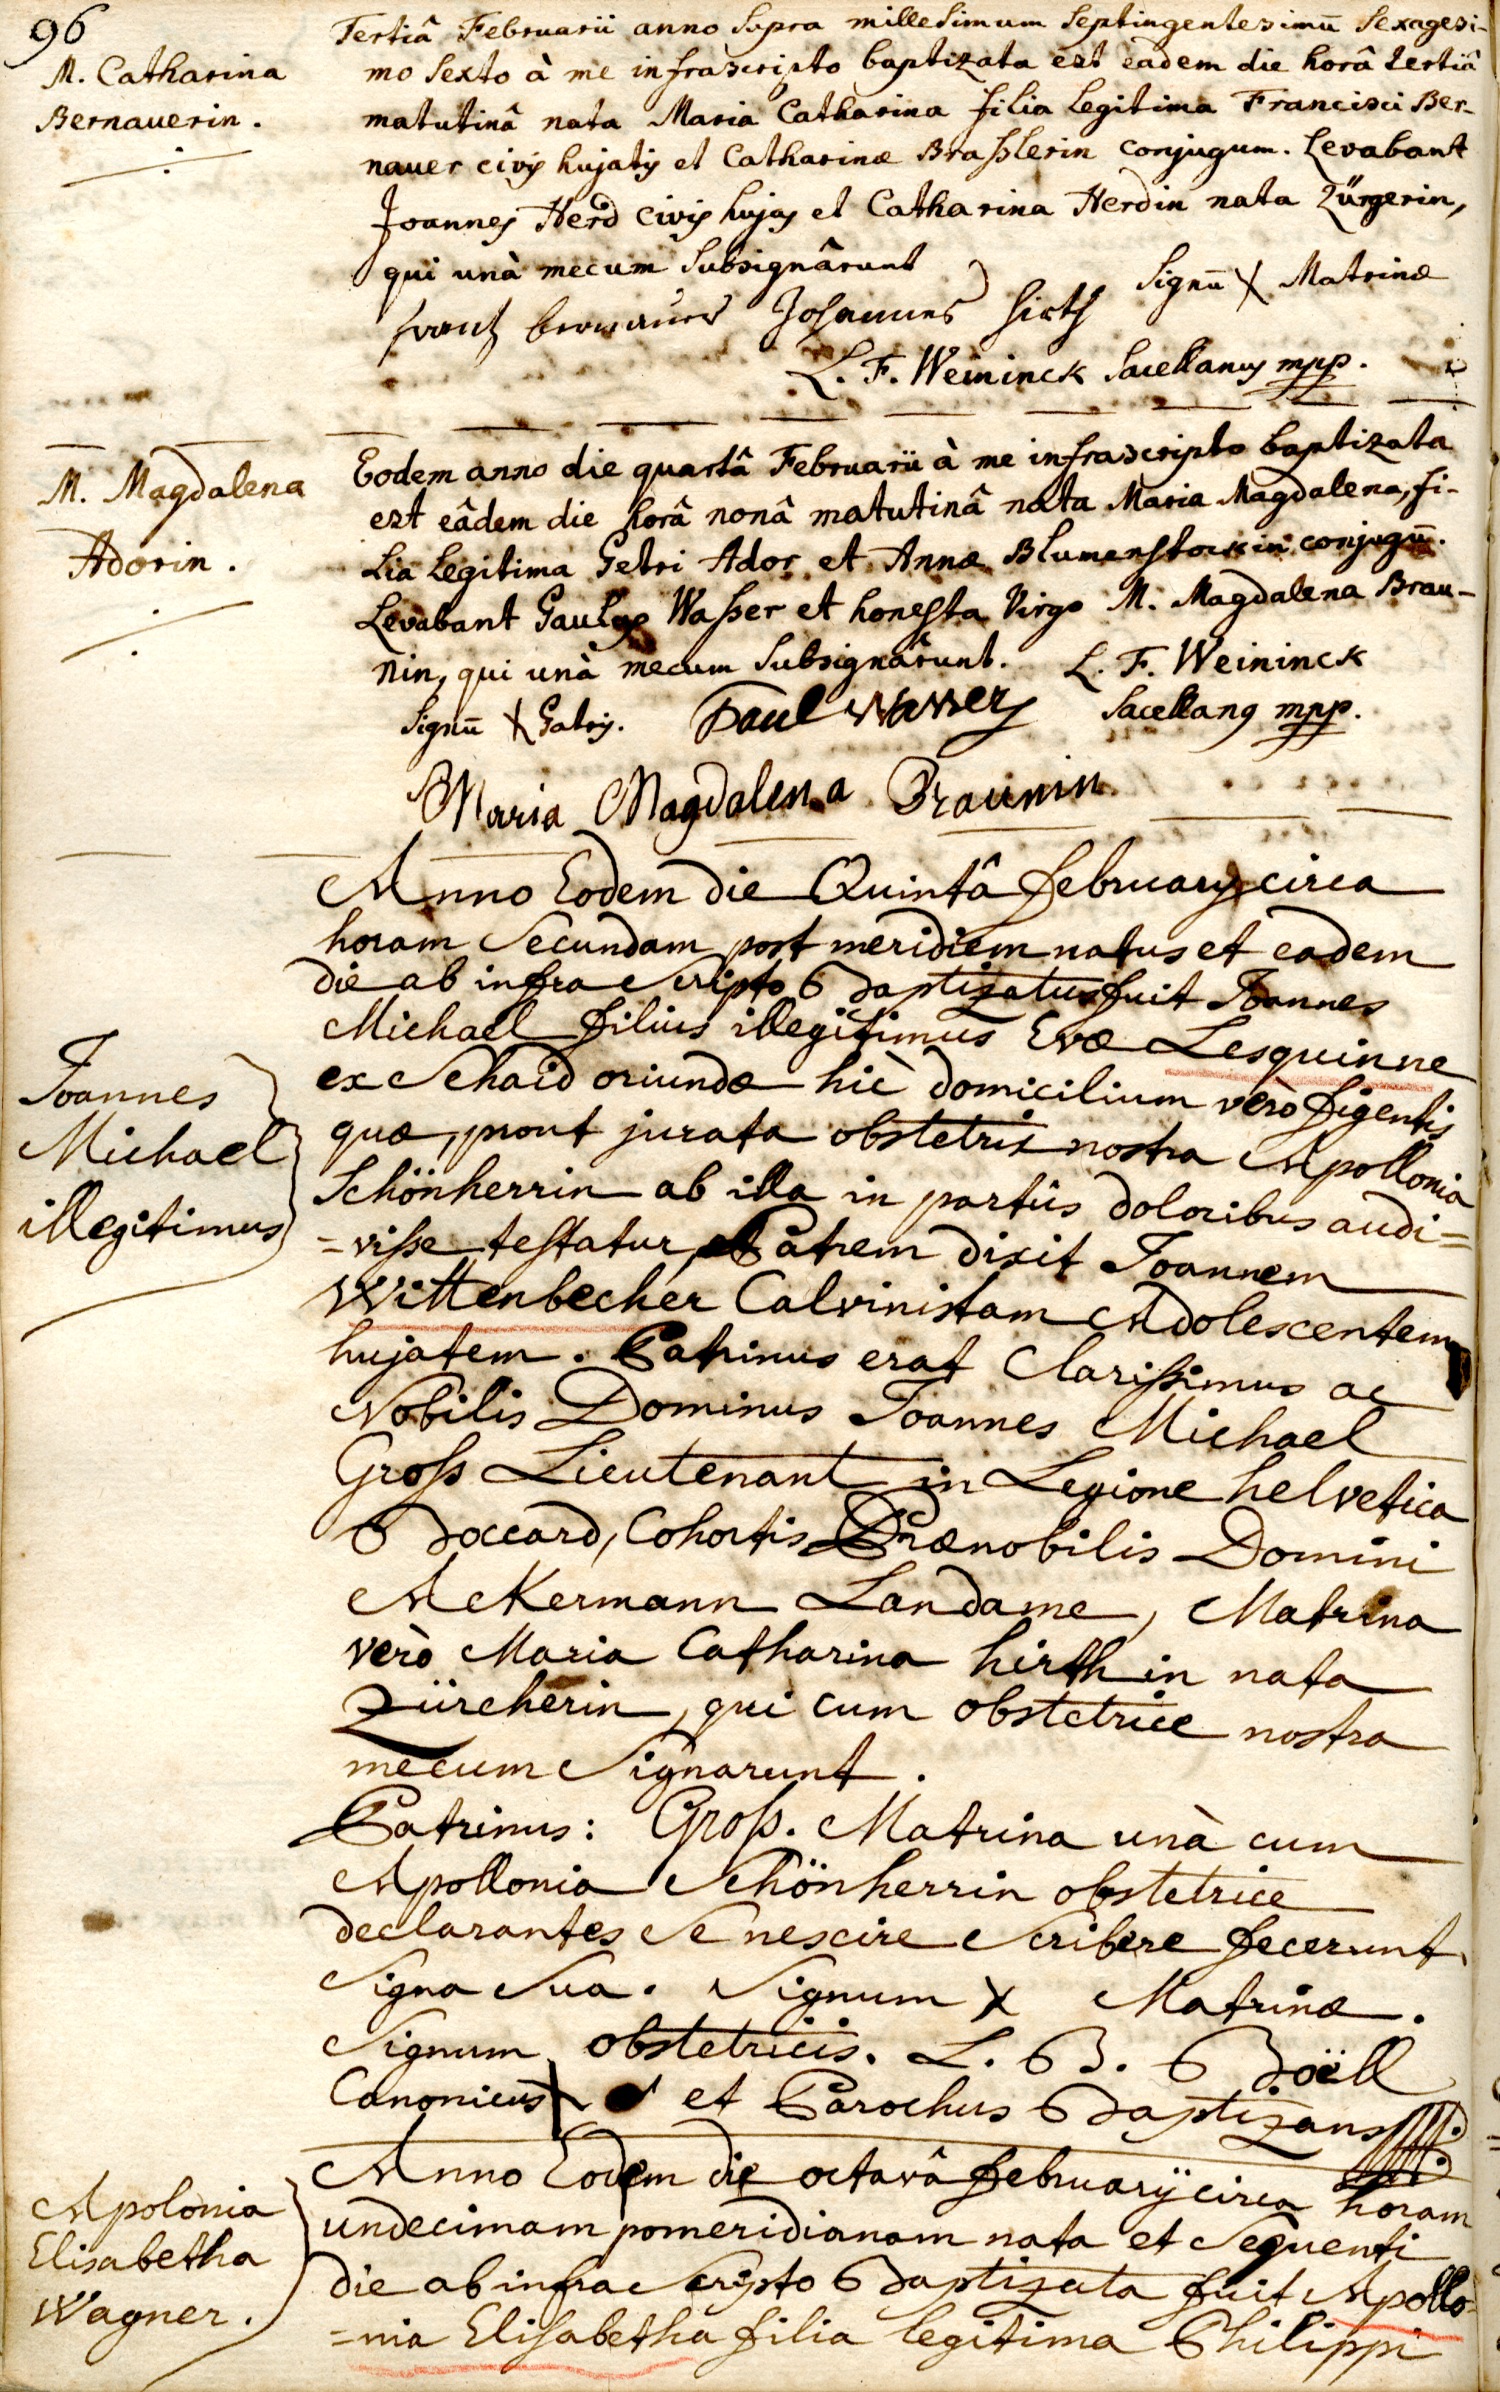 96
M. Catharina
Bernauerin.
Tertiâ Februarii anno supra millesimum septingentesimū sexagesi-
mo sexto à me infrascripto baptizata est eadem die horâ tertiâ
matutinâ nata Maria Catharina filia legitima Francisci Ber-
nauer civis hujatis et Catharinæ Braßlerin conjugum. Levabant
Joannes Herd civis hujas et Catharina Herdin nata Zürgerin,
qui unà mecum subsignârunt
Signū X Matrinæ
frantz bernauer Johannes hirth
L. F. Weininck Sacellanus mpp.
M. Magdalena
Adorin.
Eodem anno die quartâ Februarii à me infrascripto baptizata
est eâdem die horâ nonâ matutinâ nata Maria Magdalena, fi-
lia legitima Petri Ador et Annæ Blumenstockin conjugū.
Levabant Paulus Waßer et honesta Virgo M. Magdalena Brau-
nin, qui unà mecum subsignârunt. L. F. Weininck
Signū X Patris. Paul wasser Sacellanus mpp.
Maria Magdalena Braunin
Joannes
Michael
illegitimus
Anno Eodem die Quintâ february circa
horam Secundam post meridiem natus et eadem
die ab infra Scripto Baptizatus fuit Joannes
Michael filius illegitimus Evæ Lesquinne
ex Schaid oriundæ hìc domicilium verò figentis
quæ, prout jurata obstetrix nostra Apollonia
Schönherrin ab illa in partûs doloribus audi=
=visse testatur, Patrem dixit Joannem
Wittenbecher Calvinistam Adolescentem
hujatem. Patrinus erat Clarissimus ac
Nobilis Dominus Joannes Michael
Groß Lieutenant in Legione helvetica
Boccard, Cohortis Prænobilis Domini
Ackermann Landame, Matrina
verò Maria Catharina hirthin nata
Zürcherin, qui cum obstetrice nostra
mecum Signarunt.
Patrinus: Groß. Matrina unà cum
Apollonia Schönherrin obstetrice
declarantes Se nescire Scribere fecerunt
Signa Sua. Signum X Matrinæ.
Signum obstetricis. L. B. Boëll
Canonicus X et Parochus Baptizans
Apolonia
Elisabetha
Wagner.
Anno Eodem die octavâ februarÿ circa horam
undecimam pomeridianam nata et Sequenti
die ab infra Scripto Baptizata fuit Apollo=
=nia Elisabetha filia legitima Philippi